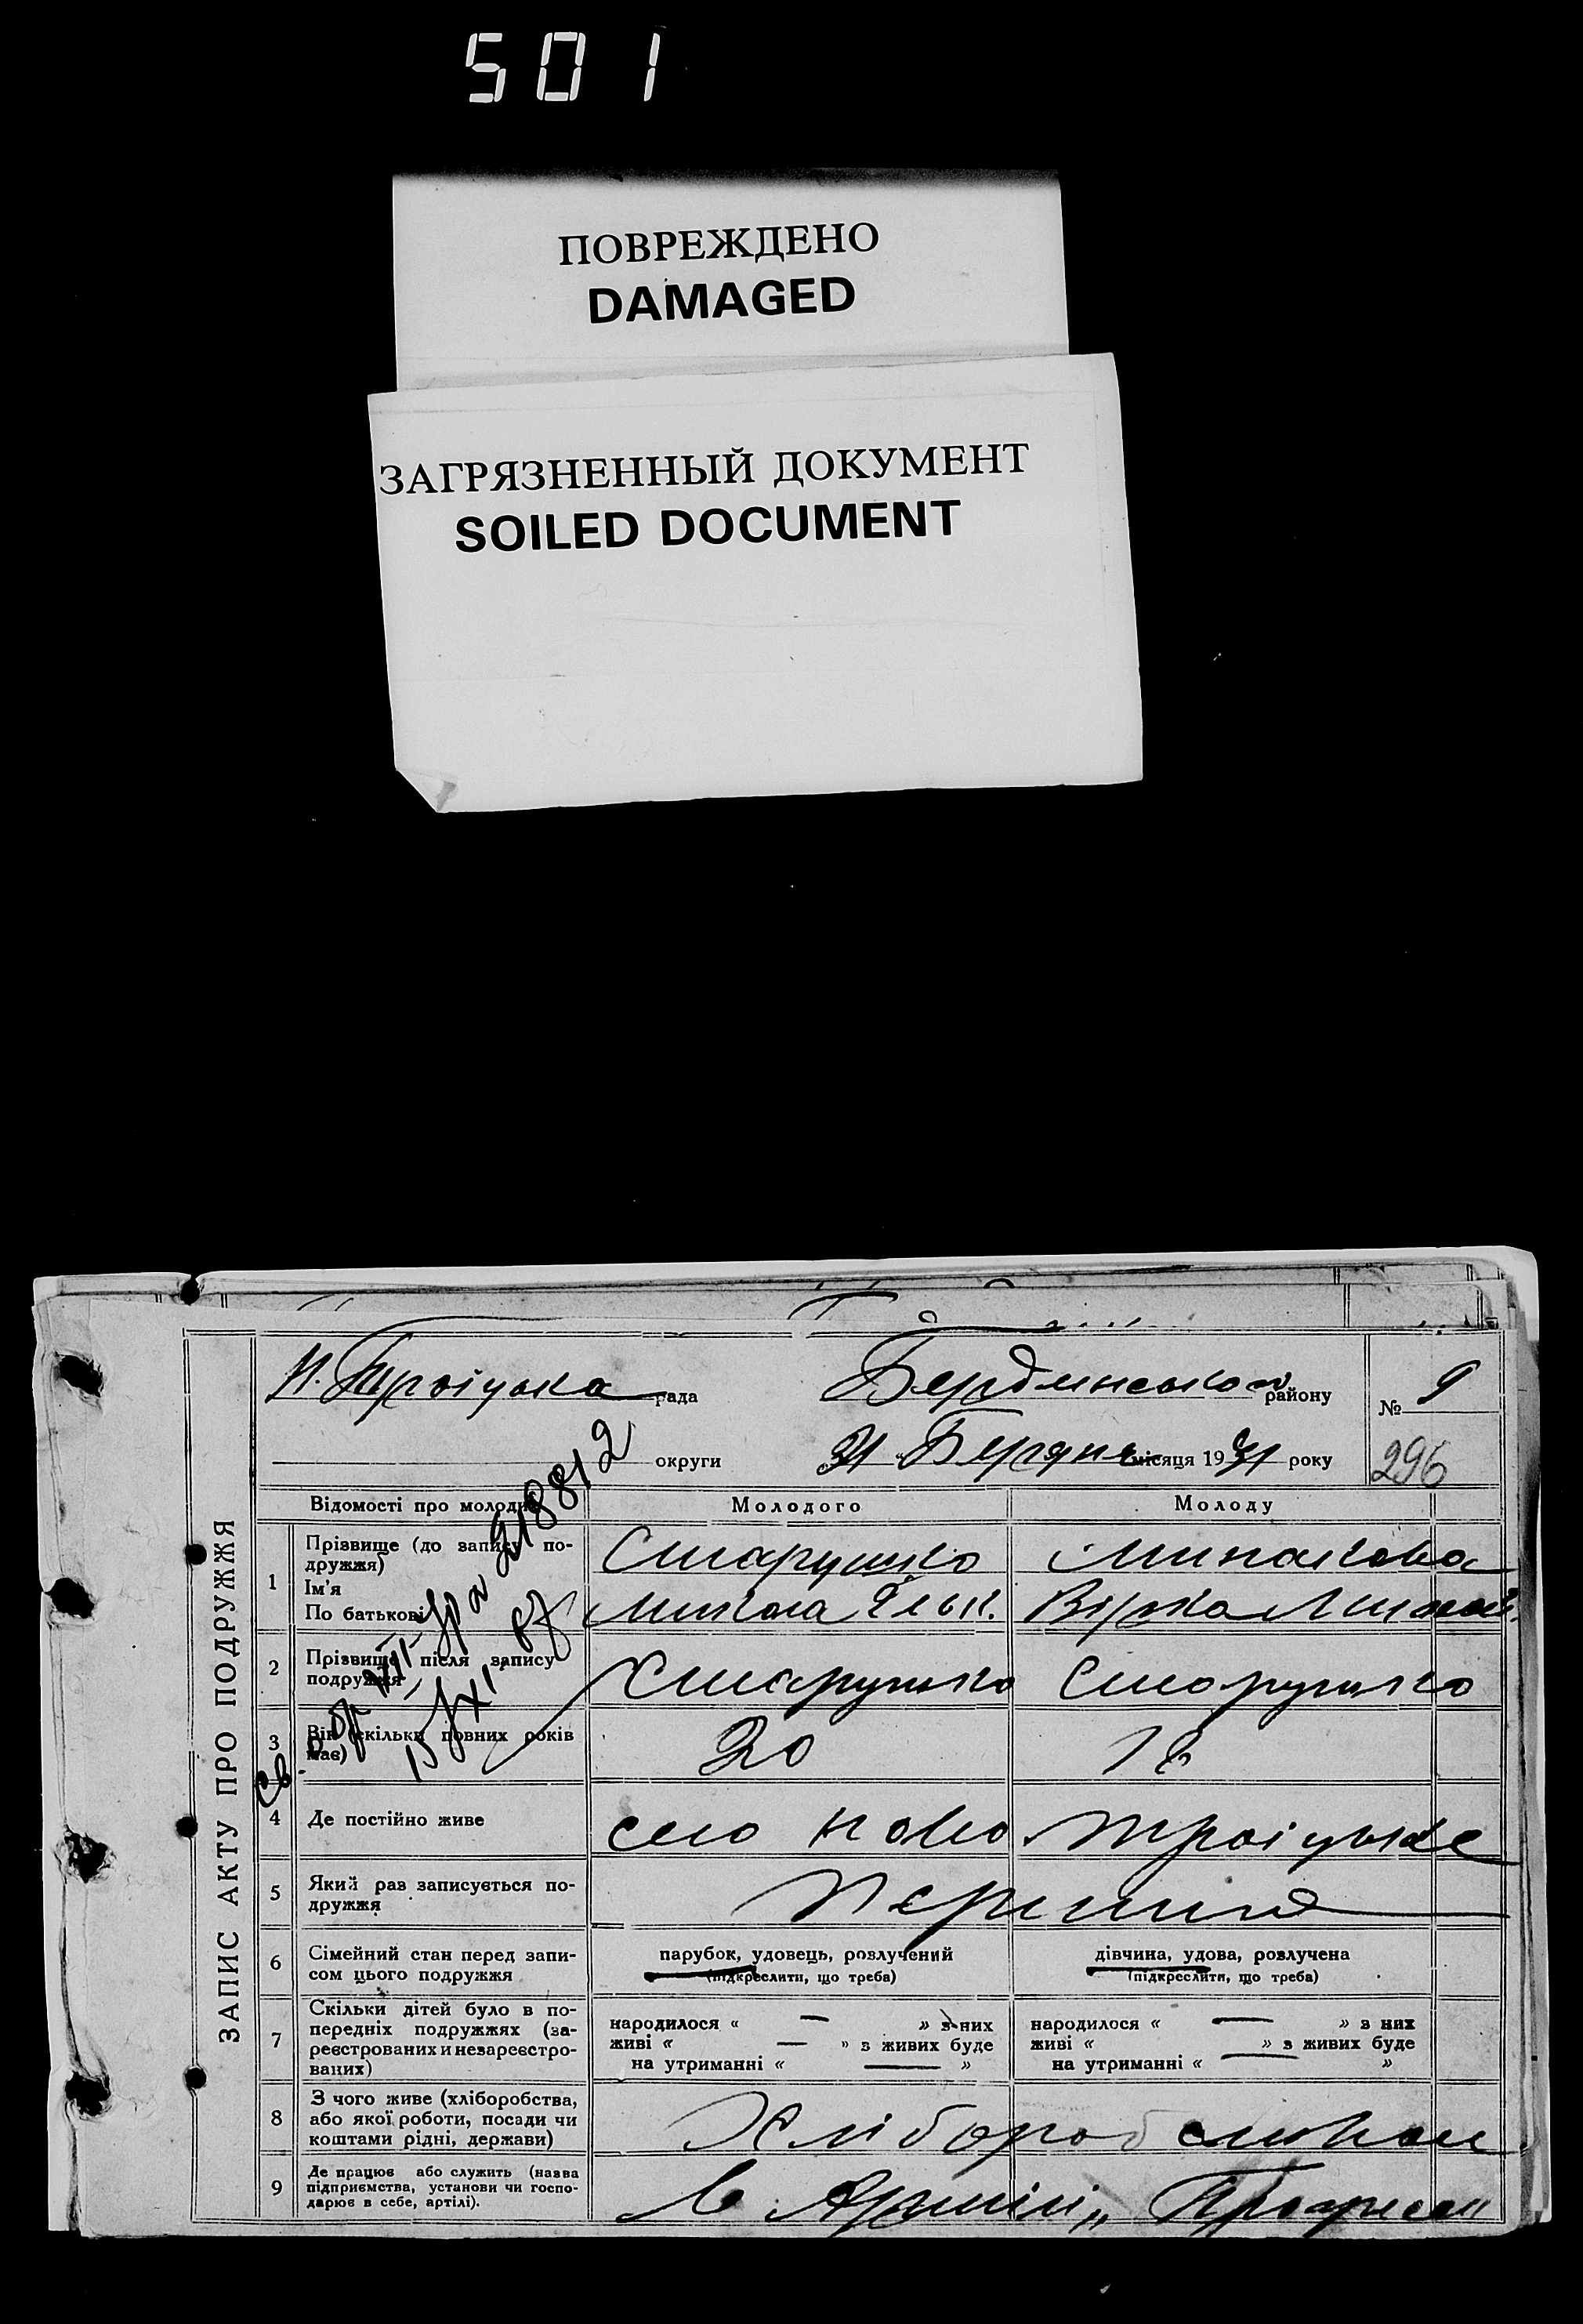 501
ПОВРЕЖДЕНО
DAMAGED
ЗАГРЯЗНЕННЫЙ ДОКУМЕНТ
SOILED DOCUMENT
ЗАПИС АКТУ ПРО ПОДРУЖЖЯ
Н. Троіцька рада
Бердянського району
№ 9
округи
31 місяця 1931 року
296
218812
Відомості про молодих
Молодого
Молоду
1
Прізвище (до запису подружжя)
Ім'я
По батькові
Старушко
Минакова
Микола
Вірка
2
Прізвище після запису
подружжя
Старушко
Старушко
3
Вік (скільки повних років
має)
20
18
4
Де постійно живе
село Ново-Троіцьке
5
Який раз записується по-
дружжя
6
Сімейний стан перед запи-
сом цього подружжя
парубок, удовець, розлучений
(підкреслити, що треба)
дівчина, удова, розлучена
(підкреслити, що треба)
7
Скільки дітей було в по-
передніх подружжях (за-
реєстрованих и незареєстро-
ваних)
народилося « — » з них
живі « — » з живих буде
на утриманні « — »
народилося « — » з них
живі « — » з живих буде
на утриманні « »
8
З чого живе (хліборобства,
або якої роботи, посади чи
коштами рідні, держави)
Хліборобством
9
Де працює або служить (назва
підприємства, установи чи госпо-
дарює в себе, артілі).
В Артілі „Прогрес"